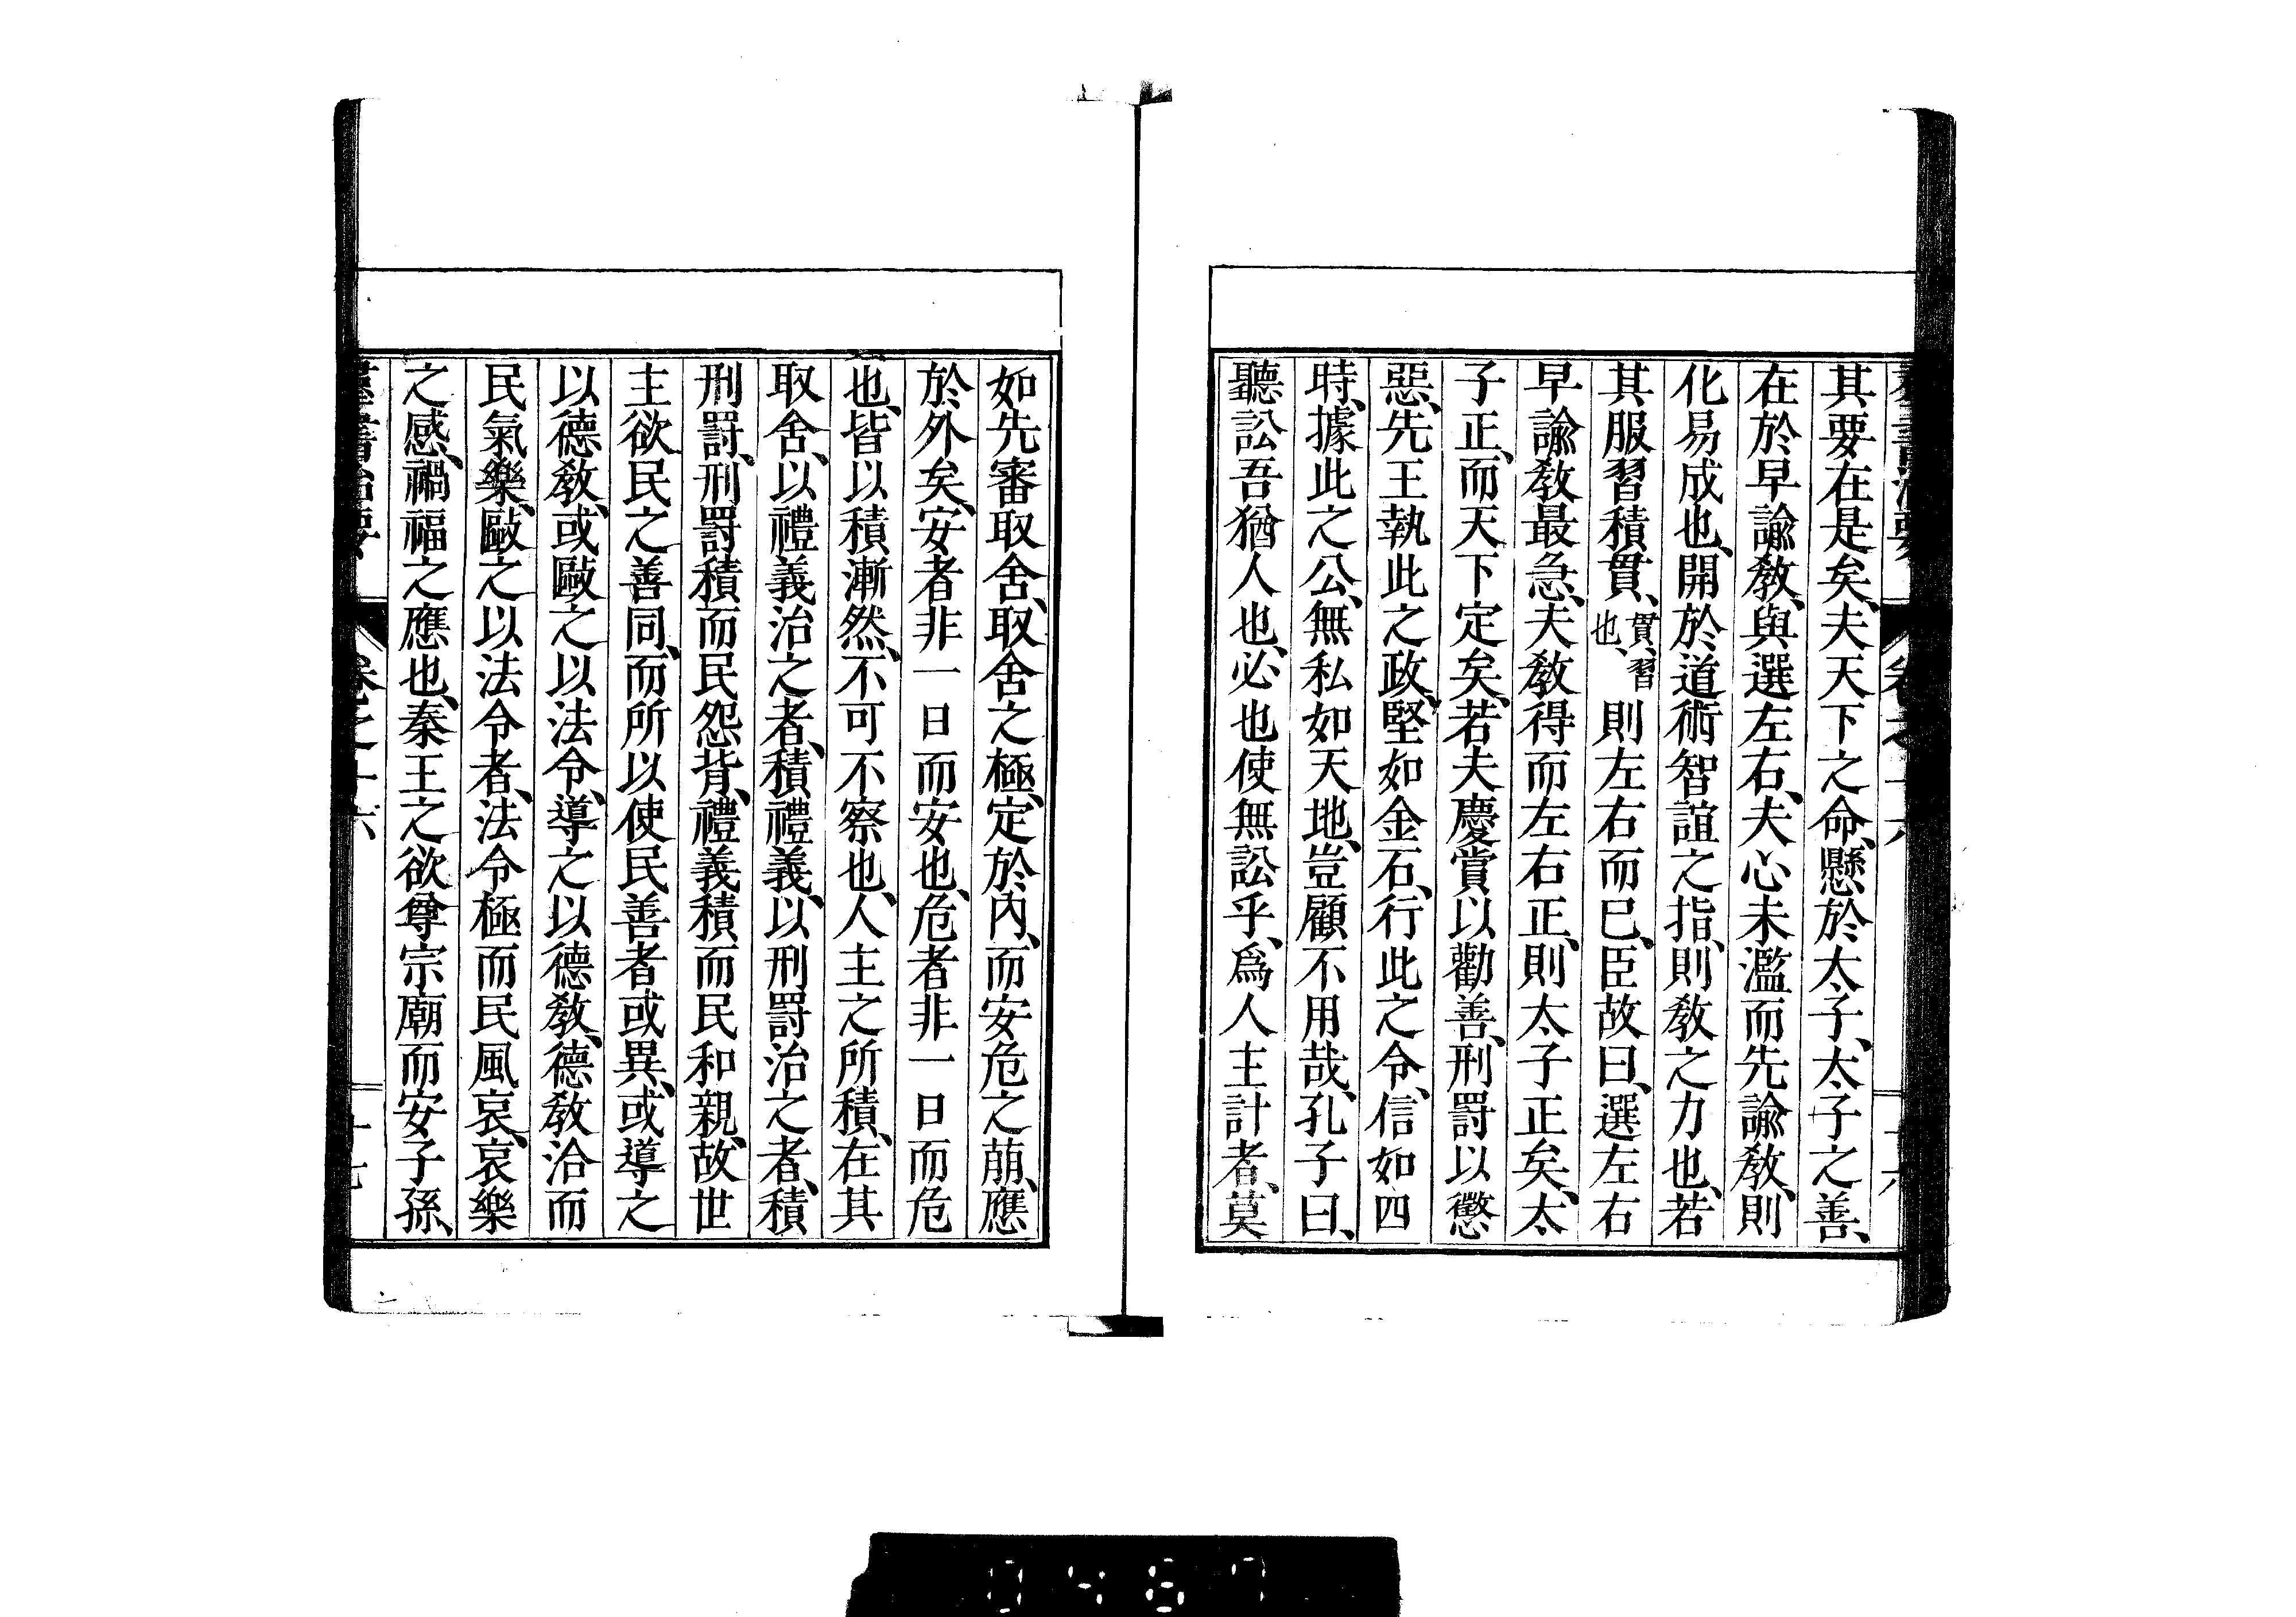 其要在是矣、夫天下之命、懸於太子、太子之善、
在於早諭教、與選左右、夫心未濫而先諭教、則
化易成也、開於道術智誼之指、則教之力也、若
其服習積貫、貫、習也、則左右而已、臣故曰、選左右
早諭教最急、夫教得而左右正、則太子正矣、太
子正、而天下定矣、若夫慶賞以勸善、刑罰以懲
惡、先王執此之政、堅如金石、行此之令、信如四
時、據此之公、無私如天地、豈顧不用哉、孔子曰、
聽訟吾猶人也、必也使無訟乎、爲人主計者、莫
如先審取舍、取舍之極、定於內、而安危之萠、應
於外矣、安者非一日而安也、危者非一日而危
也、皆以積漸然、不可不察也、人主之所積、在其
取舍、以禮義治之者、積禮義、以刑罰治之者、積
刑罰、刑罰積而民怨背、禮義積而民和親、故世
主欲民之善同、而所以使民善者或異、或導之
以德教、或敺之以法令、導之以德教、德教洽而
民氣樂、敺之以法令者、法令極而民風哀、哀樂
之感、禍福之應也、秦王之欲尊宗廟而安子孫、
羣書治要 卷之十六 十七